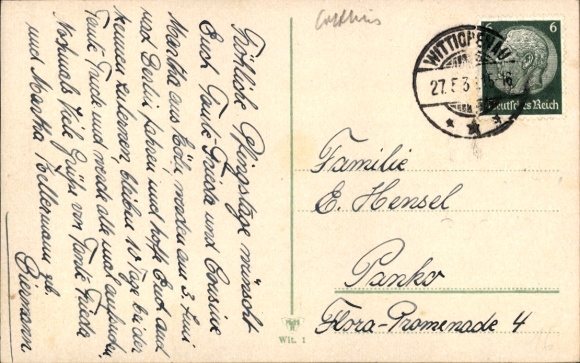 Fröhliche Pfingsttage wünscht
Euch Tante Frieda und Cousine
Martha aus Köln, werden am 3. Juni
nach Berlin fahren und hoffe Euch auch
kennen zulernen, bleiben 10 Tage bei der
Tante Trude und werde alle mal aufsuchen
Nochmals viele Grüße von Tante Frieda
und Martha Kellermann geb.
Biemann.
Cottbus
WITTICHENAU
27.5.3
6
Deutsches Reich
Familie
E. Hensel
Panko
Flora-Promenade 4
Wit. 1